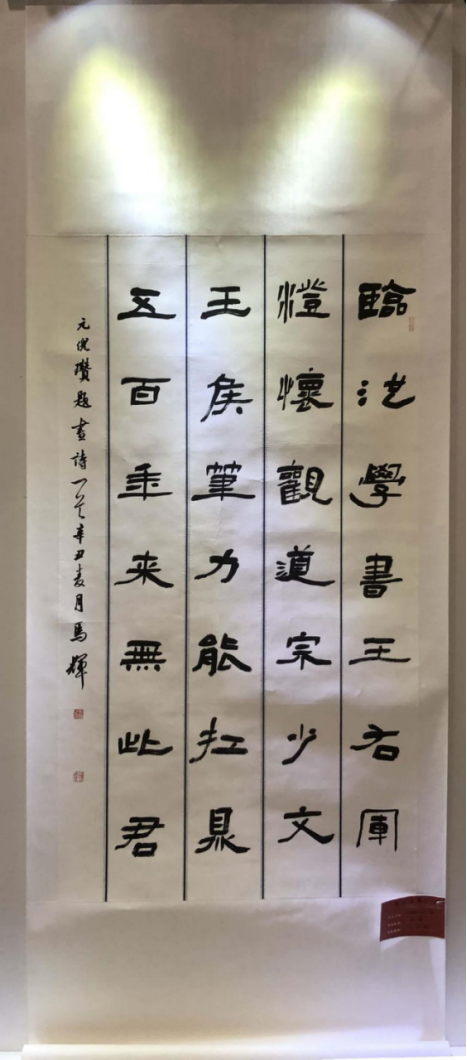 臨池學書王右軍
澄懷觀道宗少文
王侯筆力能扛鼎
五百年來無此君
元倪瓚題畫詩一首辛丑春月馬輝